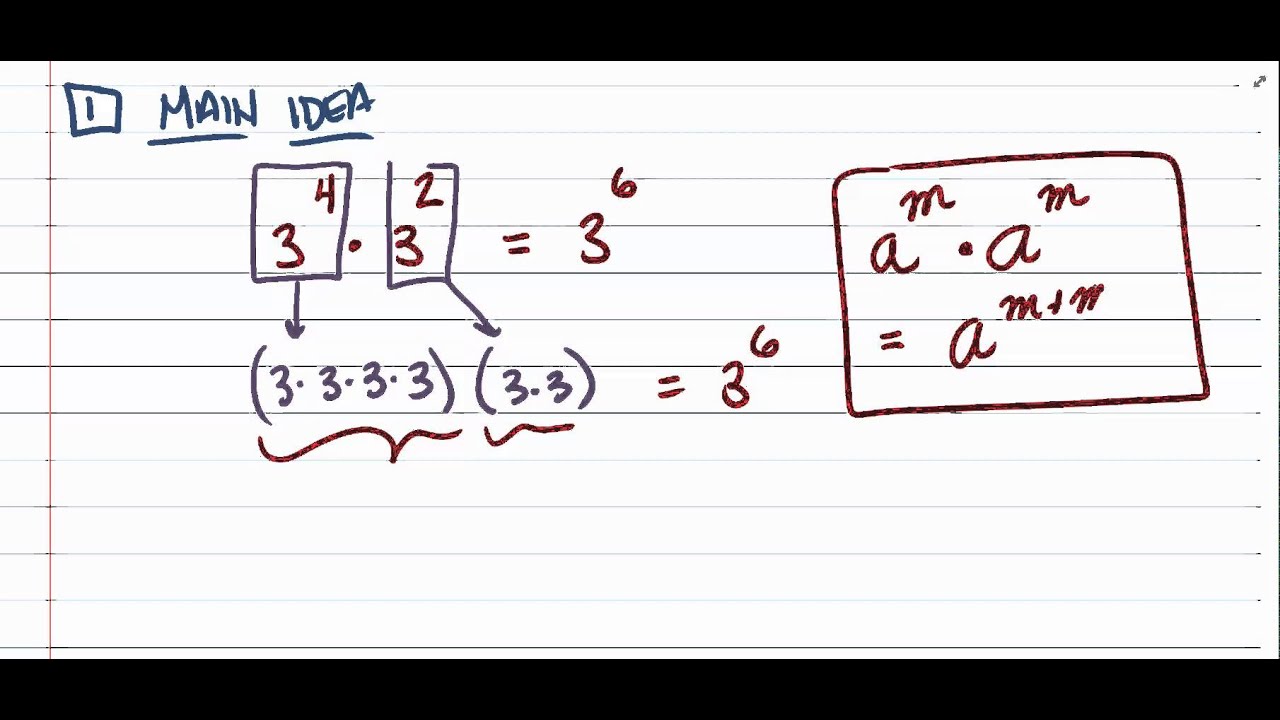 1 MAIN IDEA
3⁴ · 3² = 3⁶
(3·3·3·3) (3·3) = 3⁶
aᵐ · aᵐ
= aᵐ⁺ᵐ